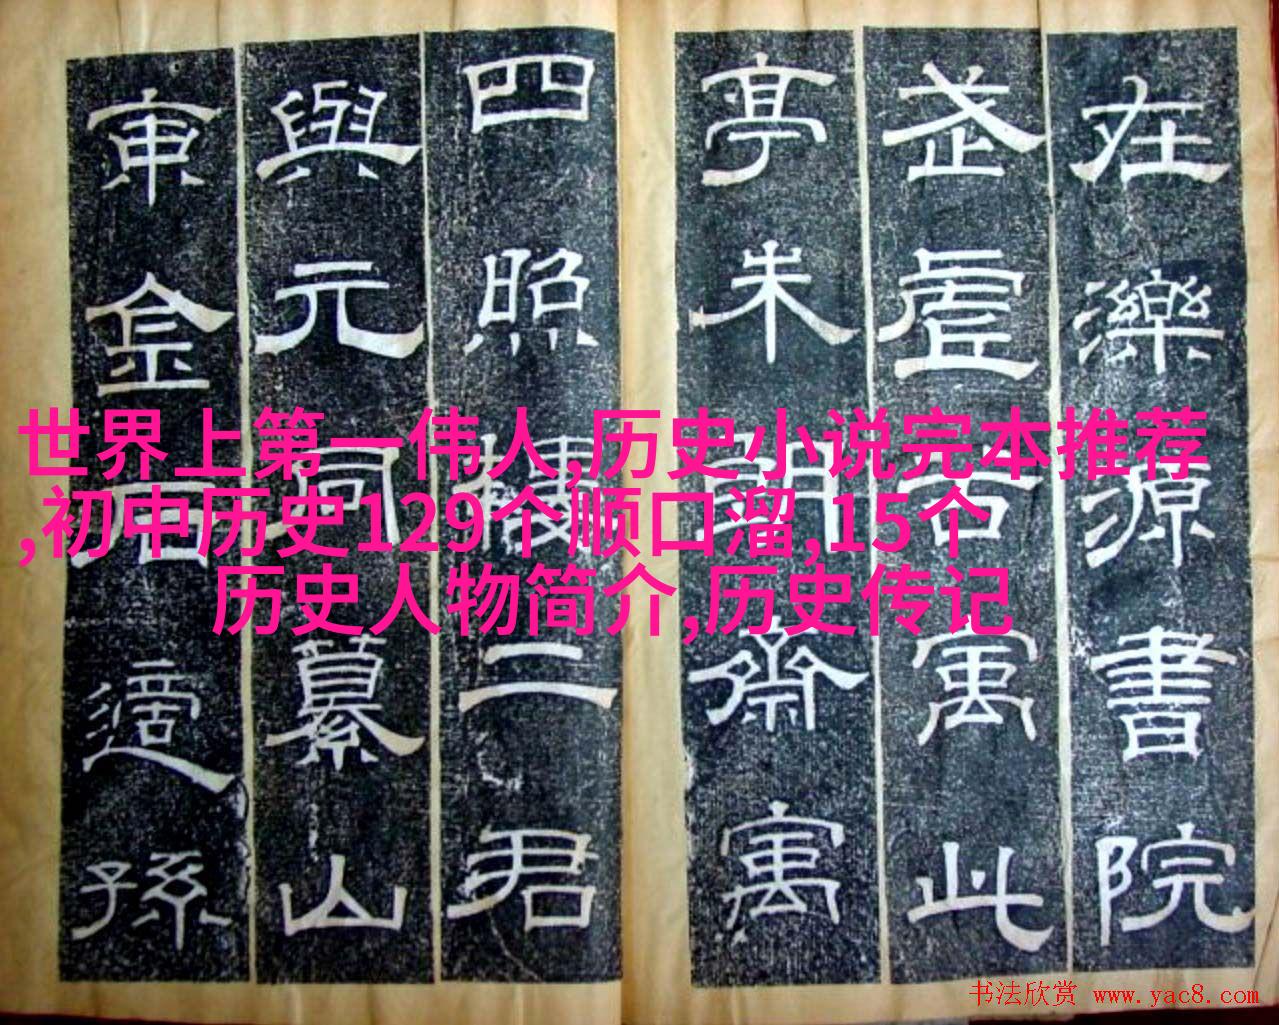 在濼源書院
武虛谷寓此
亭朱朗齋寓
四照樓二君
與元同纂山
東金石適孫
世界上第一伟人,历史小说完本推荐
,初中历史129个顺口溜,15个
历史人物简介,历史传记
书法欣赏 www.yac8.com